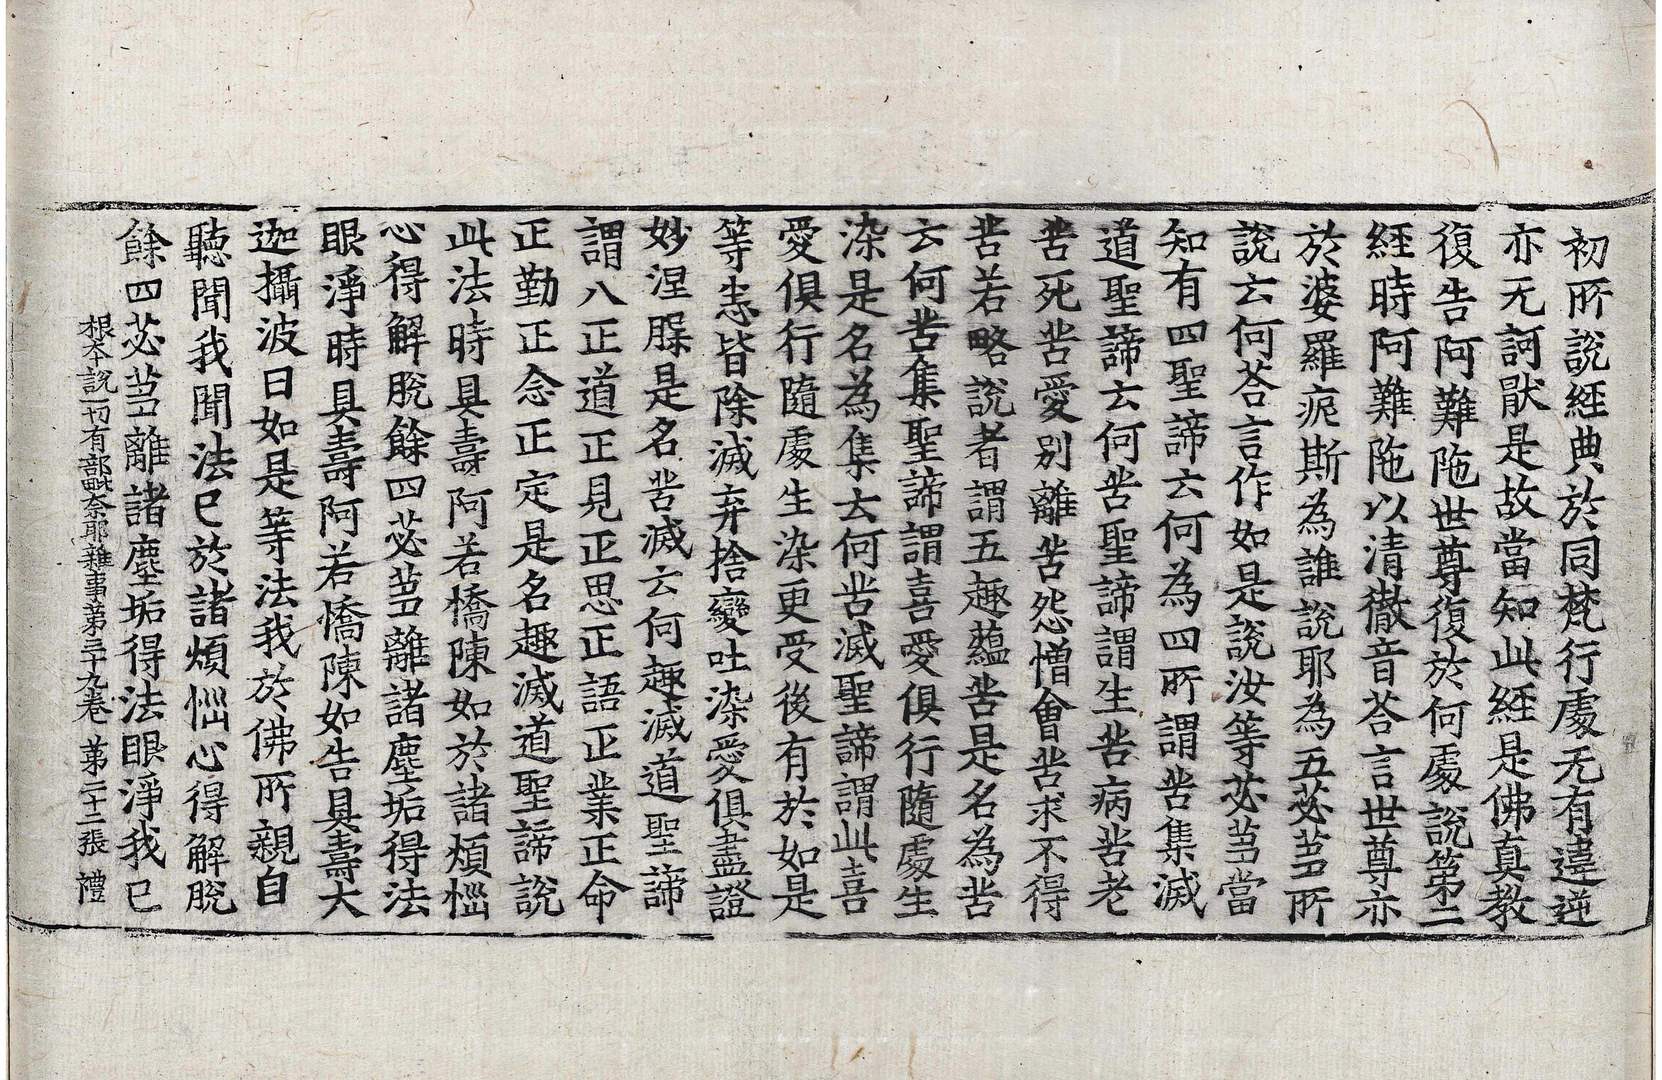 初所說經典於同梵行處无有違逆
亦无訶猒是故當知此經是佛真教
復告阿難陁世尊復於何處說第二
經時阿難陁以清徹音荅言世尊亦
於婆羅痆斯為誰說耶為五苾芻所
說云何荅言作如是說汝等苾芻當
知有四聖諦云何為四所謂苦集滅
道聖諦云何苦聖諦謂生苦病苦老
苦死苦愛別離苦怨憎會苦求不得
苦若略說者謂五趣蘊苦是名為苦
云何苦集聖諦謂喜愛俱行隨處生
染是名為集云何苦滅聖諦謂此喜
愛俱行隨處生染更受後有於如是
等恚皆除滅弃捨變吐染愛俱盡證
妙涅槃是名苦滅云何趣滅道聖諦
謂八正道正見正思正語正業正命
正勤正念正定是名趣滅道聖諦說
此法時具壽阿若憍陳如於諸煩惱
心得解脫餘四苾芻離諸塵垢得法
眼淨時具壽阿若憍陳如告具壽大
迦攝波曰如是等法我於佛所親自
聽聞我聞法已於諸煩惱心得解脫
餘四苾芻離諸塵垢得法眼淨我已
根本說一切有部毗奈耶雜事第三十九卷 第二十二張 禮